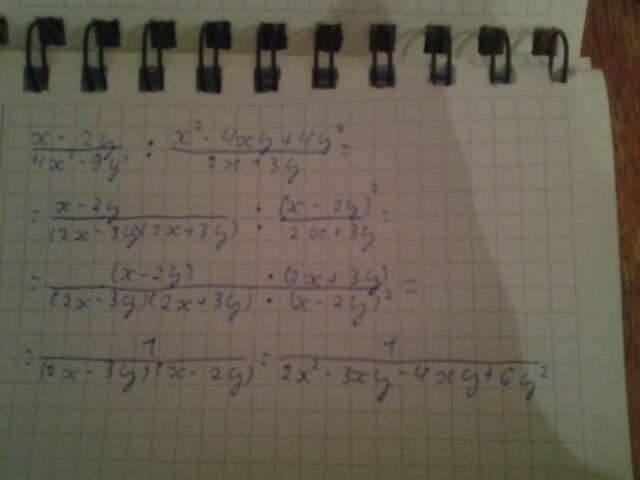 x - 2y / 4x² - 9y² : x² - 4xy + 4y² / 2x + 3y =
= x - 2y / (2x - 3y)(2x + 3y) : (x - 2y)² / 2x + 3y =
= (x - 2y) · (2x + 3y) / (2x - 3y)(2x + 3y) · (x - 2y)² =
= 1 / (2x - 3y)(x - 2y) = 1 / 2x² - 3xy - 4xy + 6y²